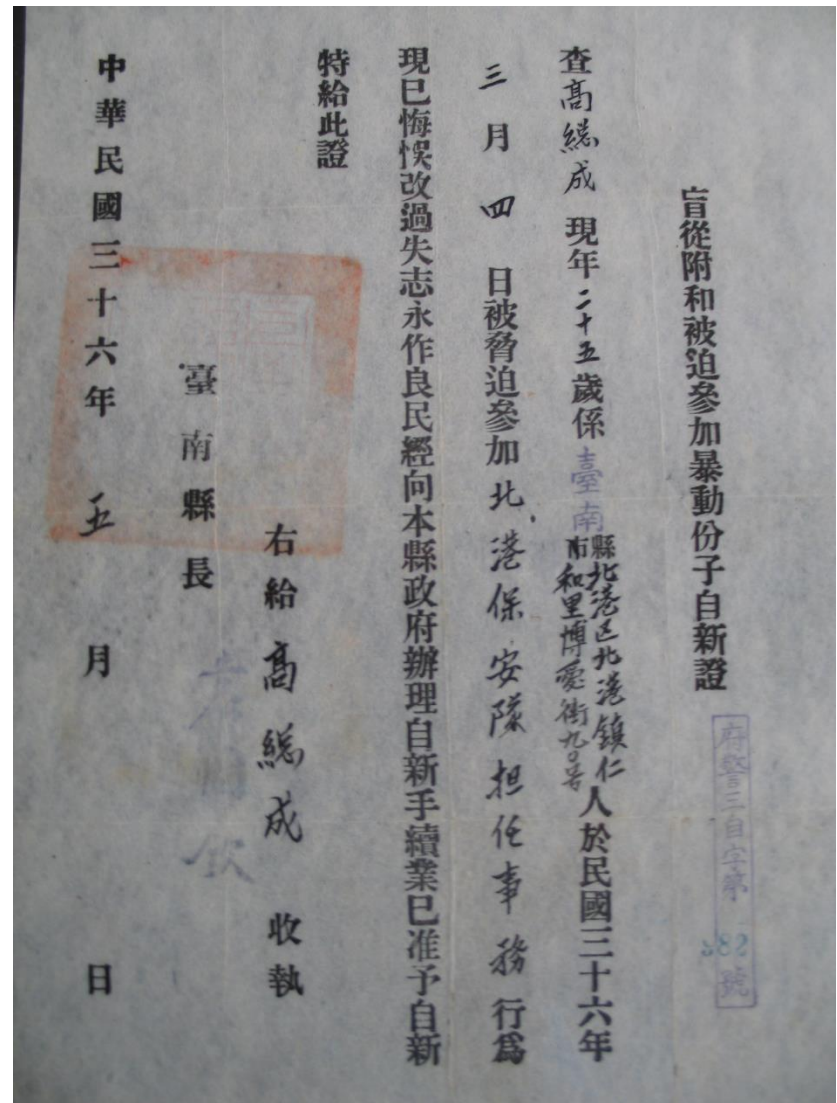 盲從附和被迫參加暴動份子自新證
府警三自字第 382 號
查高總成現年二十五歲係臺南縣市北港區北港鎮仁和里博愛街九0号人於民國三十六年
三月四日被脅迫參加北港保安隊担任事務行為
現已悔悞改過失志永作良民經向本縣政府辦理自新手續業已准予自新
特給此證
右給高總成收執
臺南縣長
中華民國三十六年五月 日